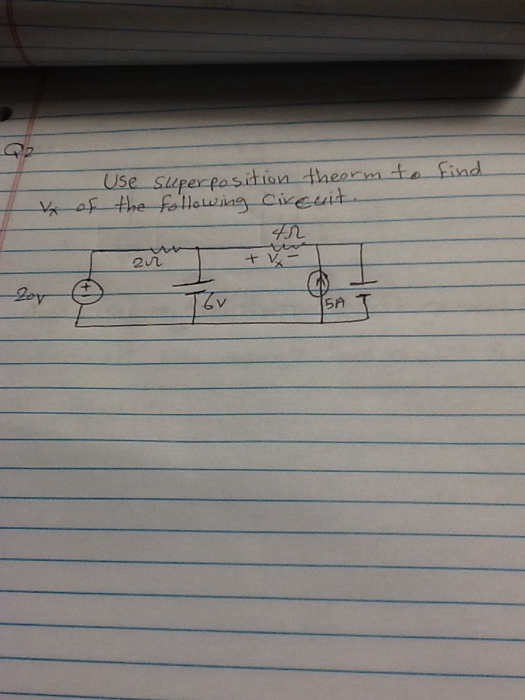 Q2
Use superposition theorm to find
Vx of the following circuit.
4Ω
2Ω
+ Vx -
20V
6V
5A